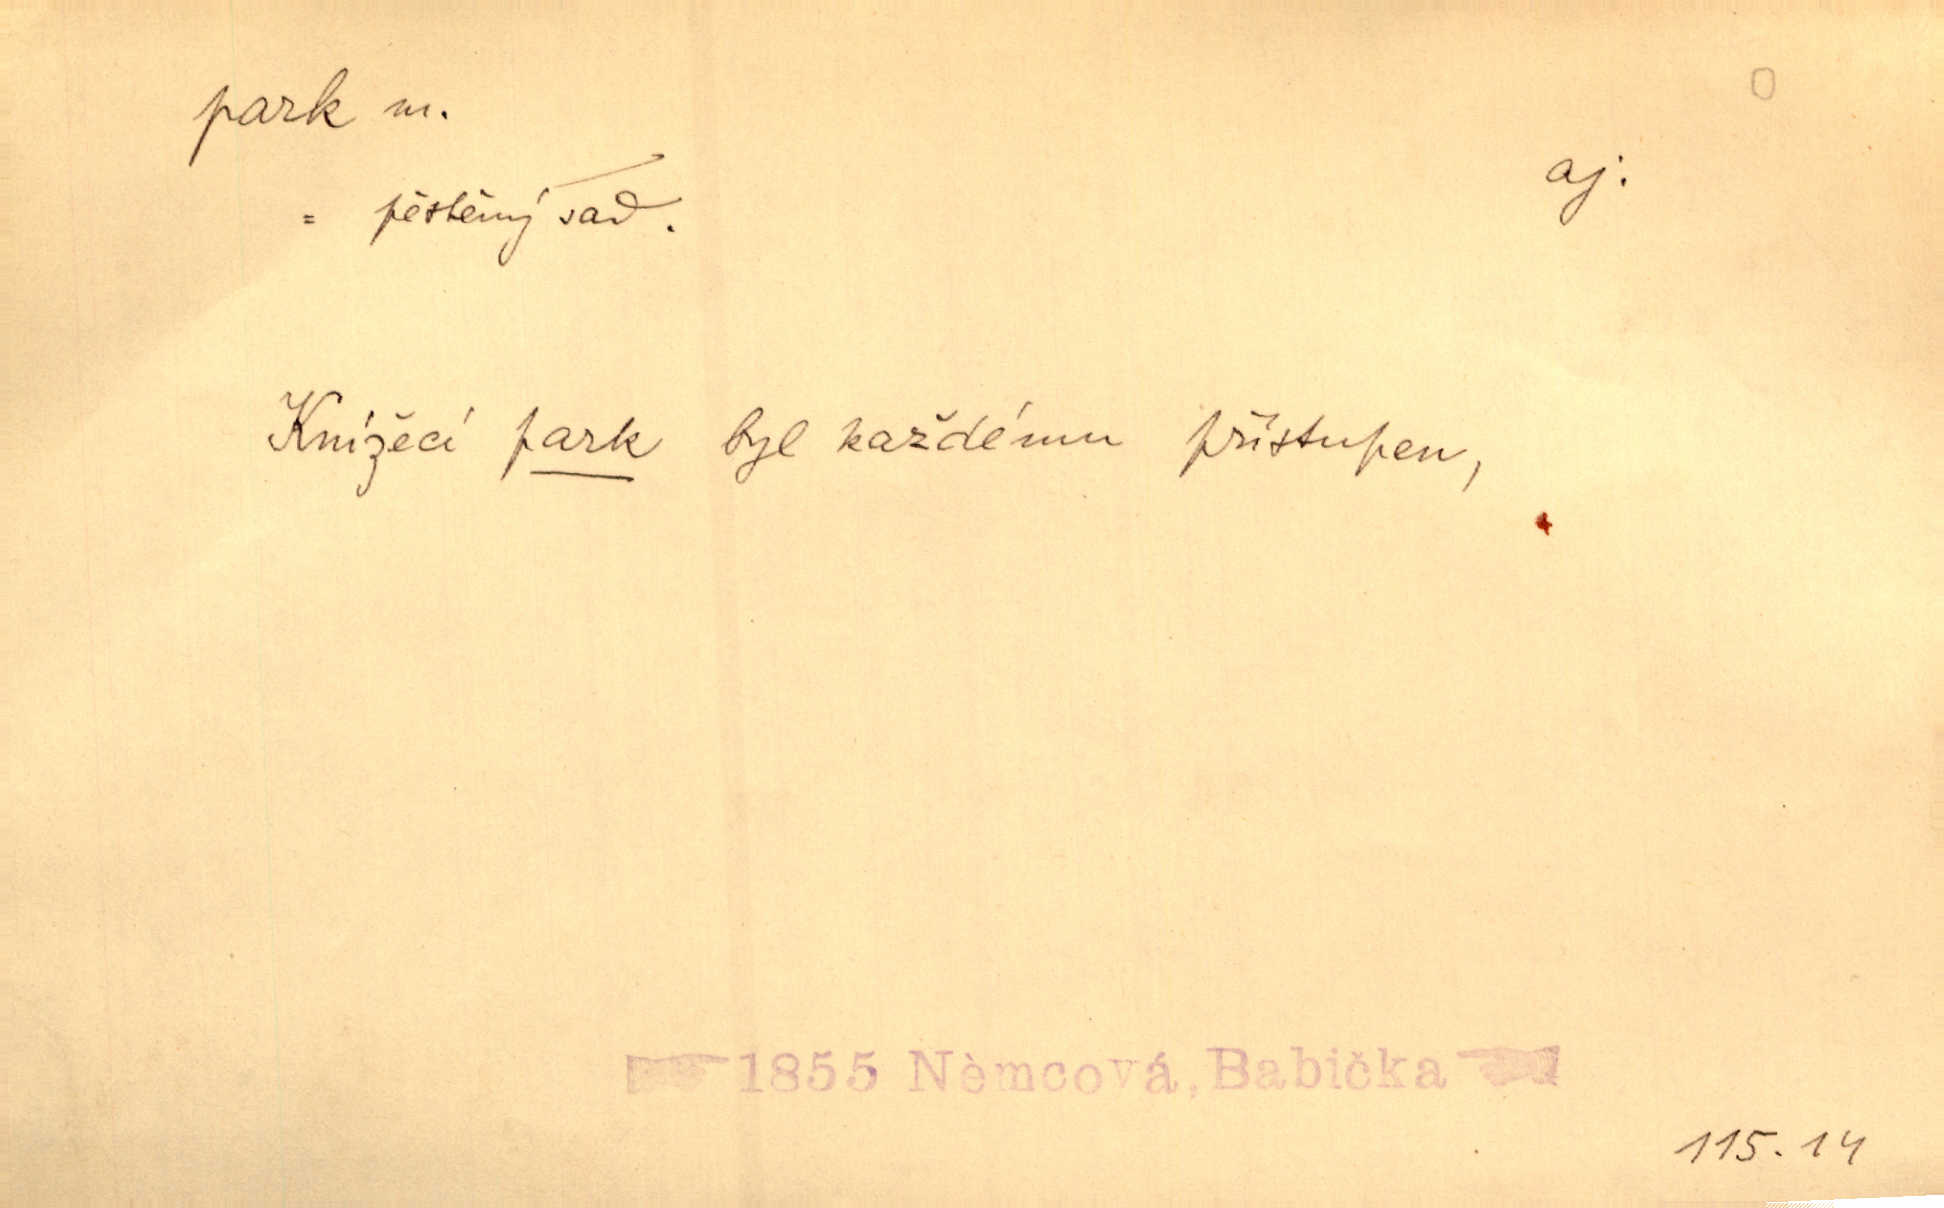 park m.
O
aj.
= pěstěný sad.
Knížecí park byl každému přístupen,
1855 Němcová, Babička
115. 14